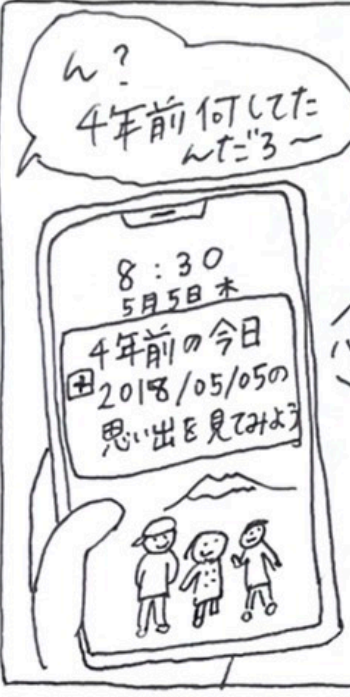 ん?
4年前何してた
んだろ〜
8:30
5月5日 木
4年前の今日
2018/05/05の
思い出を見てみよう